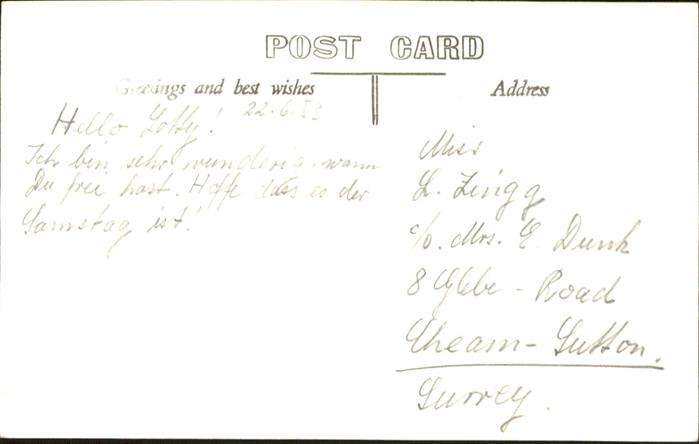 POST CARD
Greetings and best wishes
Address
22-6-
Hello Lotty!
Ich bin sehr wunderig wann
Du free hast. Hoffe dass es der
Samstag ist!
Miss
L. Zingg
c/o. Mrs. E. Dunk
8 Glebe - Road
Cheam - Sutton.
Surrey.